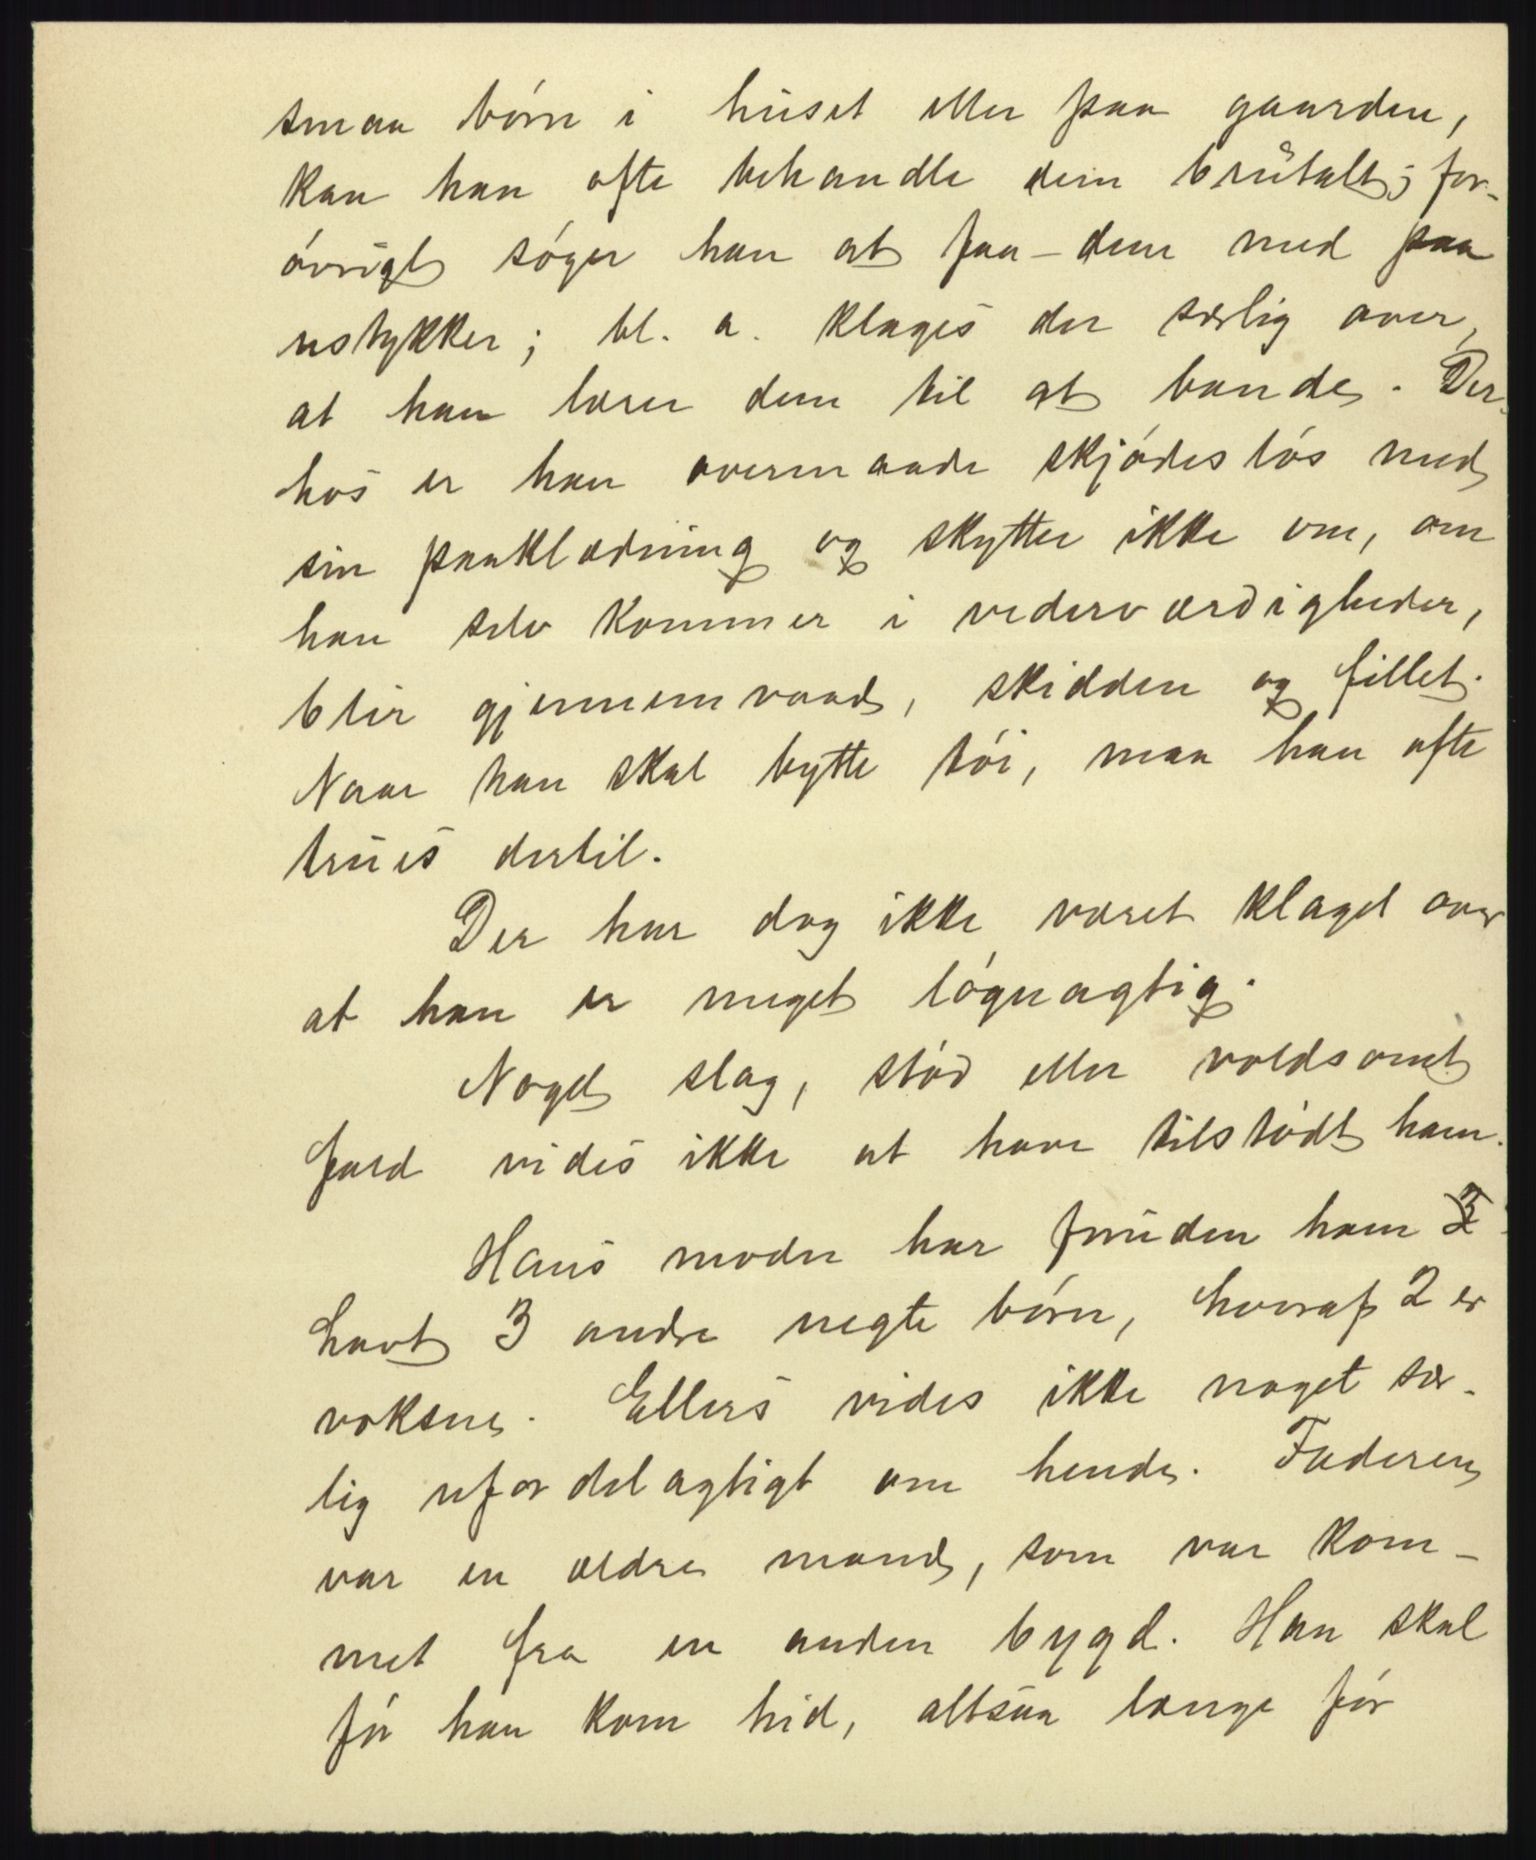 smaa börn i huset eller paa gaarden,
kan han ofte behandle dem brutalt; for-
övrigt söger han at faa dem med paa
ustykker; bl. a. klages der særlig over,
at han lærer dem til at bande. Der-
hos er han overmaade skjödeslös med
sin paaklædning og skytter ikke om, om
han selv kommer i vederværdigheder,
blir gjennemvaad, skidden og fillet.
Naar han skal bytte töi, maa han ofte
trues dertil.
Der har dog ikke været klaget over
at han er meget lögnagtig.
Noget slag, stöd eller voldsomt
fald vides ikke at have tilstödt ham.
Hans moder har foruden ham
havt 3 andre uegte börn, hvoraf 2 er
voksne. Ellers vides ikke noget sær-
lig ufordelagtigt om hende. Faderen
var en ældre mand, som var kom-
met fra en anden bygd. Han skal
för han kom hid, altsaa længe för